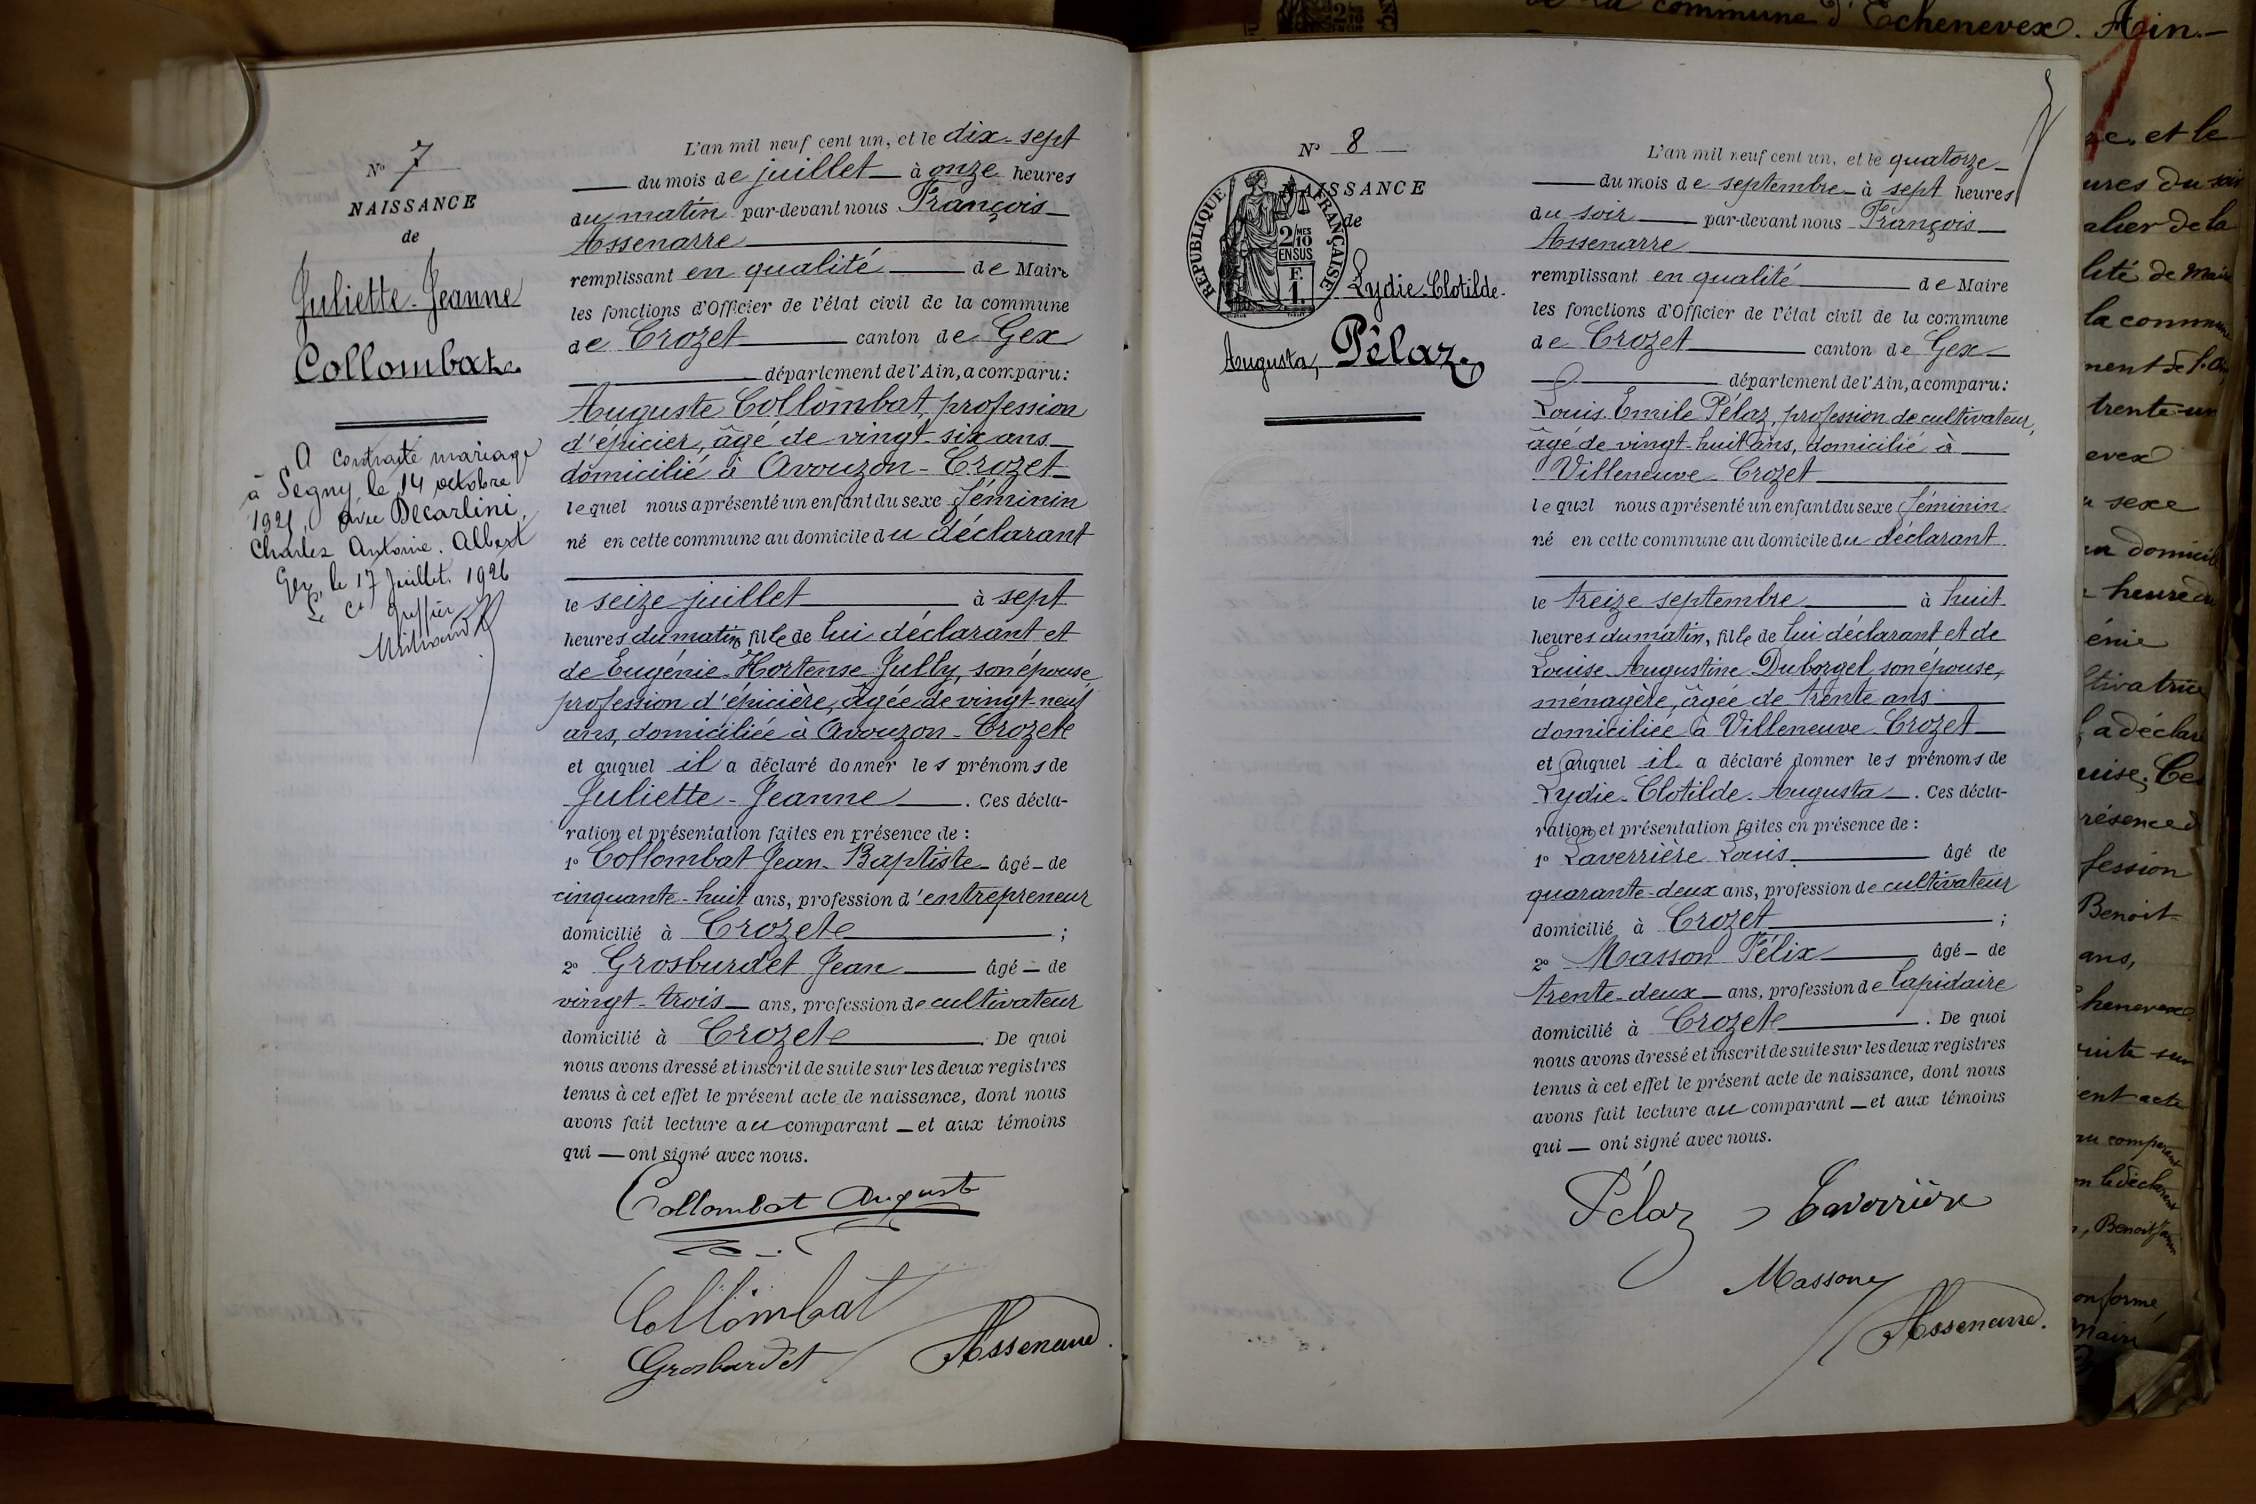 N° 7
NAISSANCE
de
Juliette-Jeanne
Collombat
A contracté mariage
à Segny, le 14 octobre
1921, avec Decarlini,
Charles Antoine. Albert
Gex, le 17 Juillet 1926
Le Cs Greffier
L'an mil neuf cent un, et le dix-sept
du mois de juillet à onze heures
du matin par-devant nous François
Assenarre
remplissant en qualité de Maire
les fonctions d'Officier de l'état civil de la commune
de Crozet canton de Gex
département de l'Ain, a comparu:
Auguste Collombat, profession
d'épicier, âgé de vingt-six ans
domicilié à Avouzon-Crozet
lequel nous a présenté un enfant du sexe féminin
né en cette commune au domicile du déclarant
le seize juillet à sept
heures du matin, fille de lui déclarant et
de Eugénie-Hortense Jully, son épouse
profession d'épicière, âgée de vingt-neuf
ans, domiciliée à Avouzon-Crozet
et auquel il a déclaré donner les prénoms de
Juliette-Jeanne. Ces décla-
ration et présentation faites en présence de :
1° Collombat Jean-Baptiste âgé de
cinquante-huit ans, profession d'entrepreneur
domicilié à Crozet ;
2° Grosburdet Jean âgé de
vingt-trois ans, profession de cultivateur
domicilié à Crozet. De quoi
nous avons dressé et inscrit de suite sur les deux registres
tenus à cet effet le présent acte de naissance, dont nous
avons fait lecture au comparant et aux témoins
qui ont signé avec nous.
Collombat Auguste
Collombat
Grosburdet Assenarre
N° 8
NAISSANCE
de
RÉPUBLIQUE FRANÇAISE
2/10 MES
EN SUS
F.
1.
Lydie-Clotilde-
Augusta, Pélaz
L'an mil neuf cent un, et le quatorze
du mois de septembre à sept heures
du soir par-devant nous François
Assenarre
remplissant en qualité de Maire
les fonctions d'Officier de l'état civil de la commune
de Crozet canton de Gex
département de l'Ain, a comparu:
Louis Emile Pélaz, profession de cultivateur,
âgé de vingt-huit ans, domicilié à
Villeneuve Crozet
lequel nous a présenté un enfant du sexe féminin
né en cette commune au domicile du déclarant
le treize septembre à huit
heures du matin, fille de lui déclarant et de
Louise Augustine Duborgel, son épouse,
ménagère, âgée de trente ans
domiciliée à Villeneuve Crozet
et auquel il a déclaré donner les prénoms de
Lydie-Clotilde-Augusta. Ces décla-
ration et présentation faites en présence de :
1° Laverrière Louis âgé de
quarante-deux ans, profession de cultivateur
domicilié à Crozet ;
2° Masson Félix âgé de
trente-deux ans, profession de lapidaire
domicilié à Crozet. De quoi
nous avons dressé et inscrit de suite sur les deux registres
tenus à cet effet le présent acte de naissance, dont nous
avons fait lecture au comparant et aux témoins
qui ont signé avec nous.
Pélaz Laverrière
Masson
Assenarre.
de la commune d'Echenevex. Ain.
et le
ures du soir
alier de la
lité de Maire
la commune
ment de l'Ain
trente-un
evex
sexe
domicile
heure du
énie
ltivatrice
a déclaré
uise. Ces
résence de
fession
Benoit
ans,
henevex
suite sur
ent acte
au comparant
le déclarant
Benoit
onforme,
Maire